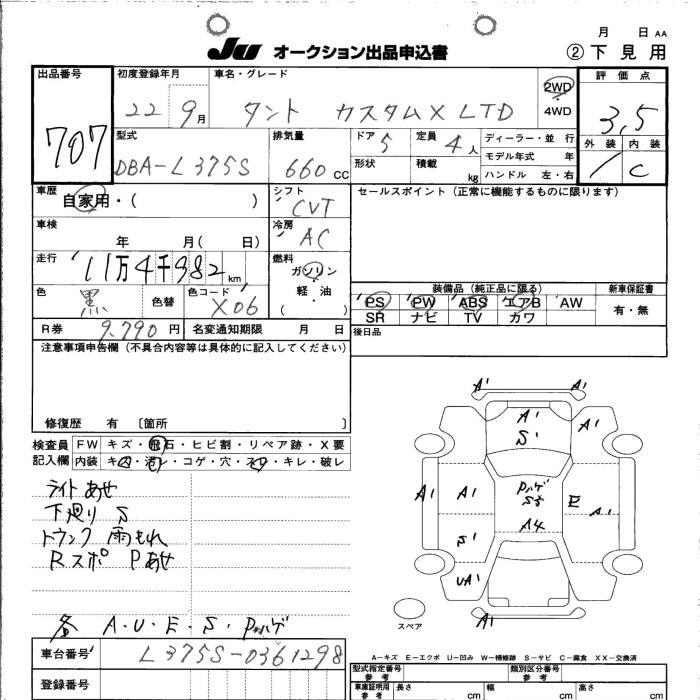 月 日 AA
JU オークション出品申込書 ②下見用
出品番号 初度登録年月 車名・グレード 2WD 評価点
707 22 9月 タント カスタムX LTD 4WD 3.5
型式 排気量 ドア 5 定員 4人 ディーラー・並行 外装 内装
DBA-L375S 660cc 形状 積載 kg モデル年式 年 ハンドル 左・右 / C
車歴 自家用・( ) シフト CVT セールスポイント(正常に機能するものに限ります)
車検 年 月( 日) 冷房 AC
走行 11万4千982km 燃料 ガソリン・軽・油 ( )
装備品(純正品に限る) 新車保証書
色 黒 色替 色コード X06 PS PW ABS エアB AW 有・無
SR ナビ TV カワ
R券 9.790円 名変通知期限 月 日 後日品
注意事項申告欄(不具合内容等は具体的に記入してください)
修復歴 有 〔箇所 〕
検査員記入欄 FW キズ・飛石・ヒビ割・リペア跡・X要
内装 キズ・汚レ・コゲ・穴・スレ・キレ・破レ
ライトあせ
下廻り S
トランク 雨もれ
Rスポ Pあせ
各 A・U・E・S・Pハゲ
A1 A1
A1 A1
S1
A1 A1 Pハゲ E A1
S5
S1 A4
UA1
A1
スペア
A-キズ E-エクボ U-凹み W-補修跡 S-サビ C-腐食 XX-交換済
車台番号 L375S-0361298
型式指定番号 参考 類別区分番号 参考
登録番号 車庫証明用 参考 長さ cm 幅 cm 高さ cm